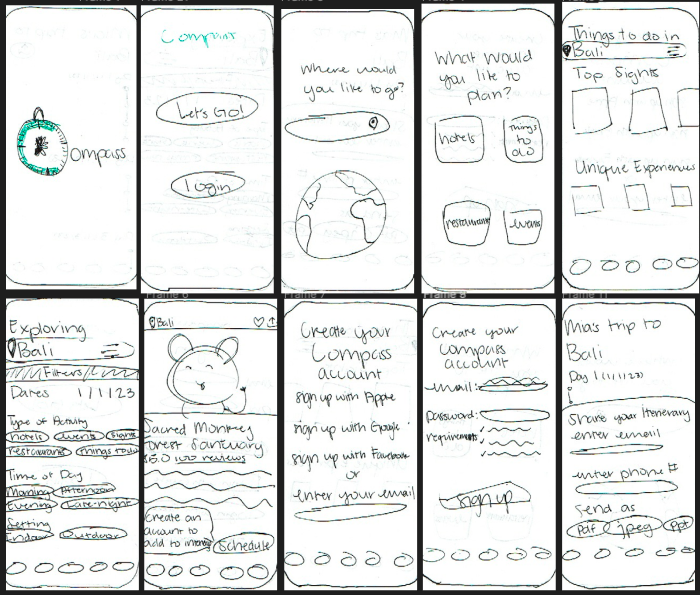 ompass
Compass
Let's Go!
login
Where would
you like to go?
What would
you like to
plan?
hotels
things
to
do
restaurants
events
Things to do in
Bali
Top Sights
Unique Experiences
Frame 6
Frame 7
Frame 8
Frame 11
Exploring
Bali
Filters
Dates 1/1/23
Type of Activity
hotels events sights
restaurants things to do
Time of Day
Morning Afternoon
Evening Late-night
Setting
Indoor Outdoor
Bali
Sacred Monkey
Forest Santuary
5.0 100 reviews
Create an
account to
add to
Schedule
Create your
Compass
account
sign up with Apple
sign up with Google
sign up with Facebook
or
enter your email
Create your
compass
account
email:
password:
requirements:
sign up
Mas trip to
Bali
Day 1 (1/1/23)
Share your Itenerary
enter email
enter phone #
Send as
Pdf jpeg ppt